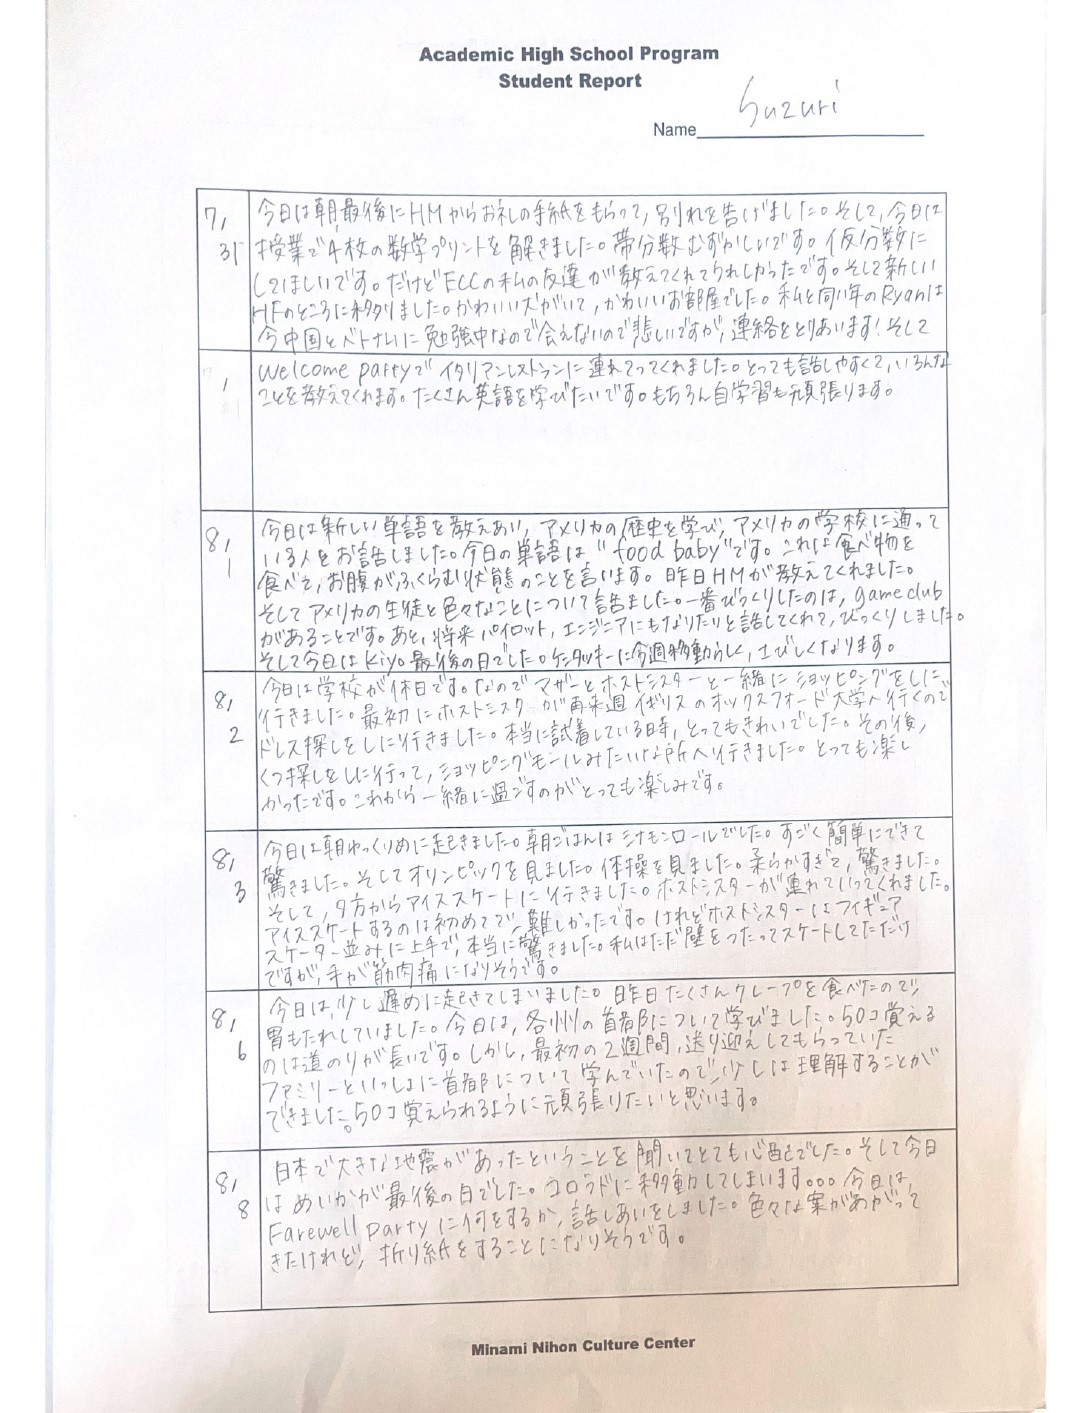 Academic High School Program
Student Report
Name Suzuri
7/31
今日は朝最後にHMからお礼の手紙をもらって、別れを告げました。そして、今日は
授業で4枚の数学プリントを解きました。帯分数むずかしいです。仮分数に
してほしいです。だけどECCの私の友達が教えてくれてうれしかったです。そして新しい
HFのところに移りました。かわいい犬がいて、かわいいお部屋でした。私と同い年のRyanは
今中国とベトナムに勉強中なので会えないので悲しいですが、連絡をとりあいます!そして
1
Welcome partyでイタリアンレストランに連れてってくれました。とっても話しやすくて、いろんな
ことを教えてくれます。たくさん英語を学びたいです。もちろん自学習も頑張ります。
8/1
今日は新しい単語を教えあい、アメリカの歴史を学び、アメリカの学校に通って
いる人をお話しました。今日の単語は"food baby"です。これは食べ物を
食べて、お腹がふくらむ状態のことを言います。昨日HMが教えてくれました。
そしてアメリカの生徒と色々なことについて話ました。一番びっくりしたのは、game club
があることです。あと、将来パイロット、エンジニアにもなりたりと話してくれて、びっくりしました。
そして今日はKiyo最後の日でした。ケンタッキーに今週移動らしく、さびしくなります。
8/2
今日は学校が休日です。なのでマザーとホストシスターと一緒にショッピングをしに
行きました。最初にホストシスターが再来週イギリスのオックスフォード大学へ行くので
ドレス探しをしに行きました。本当に試着している時、とってもきれいでした。その後、
くつ探しをしに行って、ショッピングモールみたいな所へ行きました。とっても楽し
かったです。これから一緒に過ごすのがとっても楽しみです。
8/3
今日は朝ゆっくりめに起きました。朝ごはんはシナモンロールでした。すごく簡単にできて
驚きました。そしてオリンピックを見ました。体操を見ました。柔らかすぎて、驚きました。
そして、夕方からアイススケートに行きました。ホストシスターが連れていってくれました。
アイススケートするのは初めてで、難しかったです。けれどホストシスターはフィギュア
スケーター並みに上手で、本当に驚きました。私はただ壁をつたってスケートしてただけ
ですが、手が筋肉痛になりそうです。
8/6
今日は、少し遅めに起きてしまいました。昨日たくさんクレープを食べたので、
胃もたれしていました。今日は、各州の首都について学びました。50コ覚える
のは道のりが長いです。しかし、最初の2週間、送り迎えしてもらっていた
ファミリーといっしょに首都について学んでいたので、少しは理解することが
できました。50コ覚えられるように頑張りたいと思います。
8/8
日本で大きな地震があったということを聞いてとても心配でした。そして今日
はめいかが最後の日でした。コロラドに移動してしまいます。。。今日は、
Farewell Partyに何をするか、話しあいをしました。色々な案があがって
きたけれど、折り紙をすることになりそうです。
Minami Nihon Culture Center